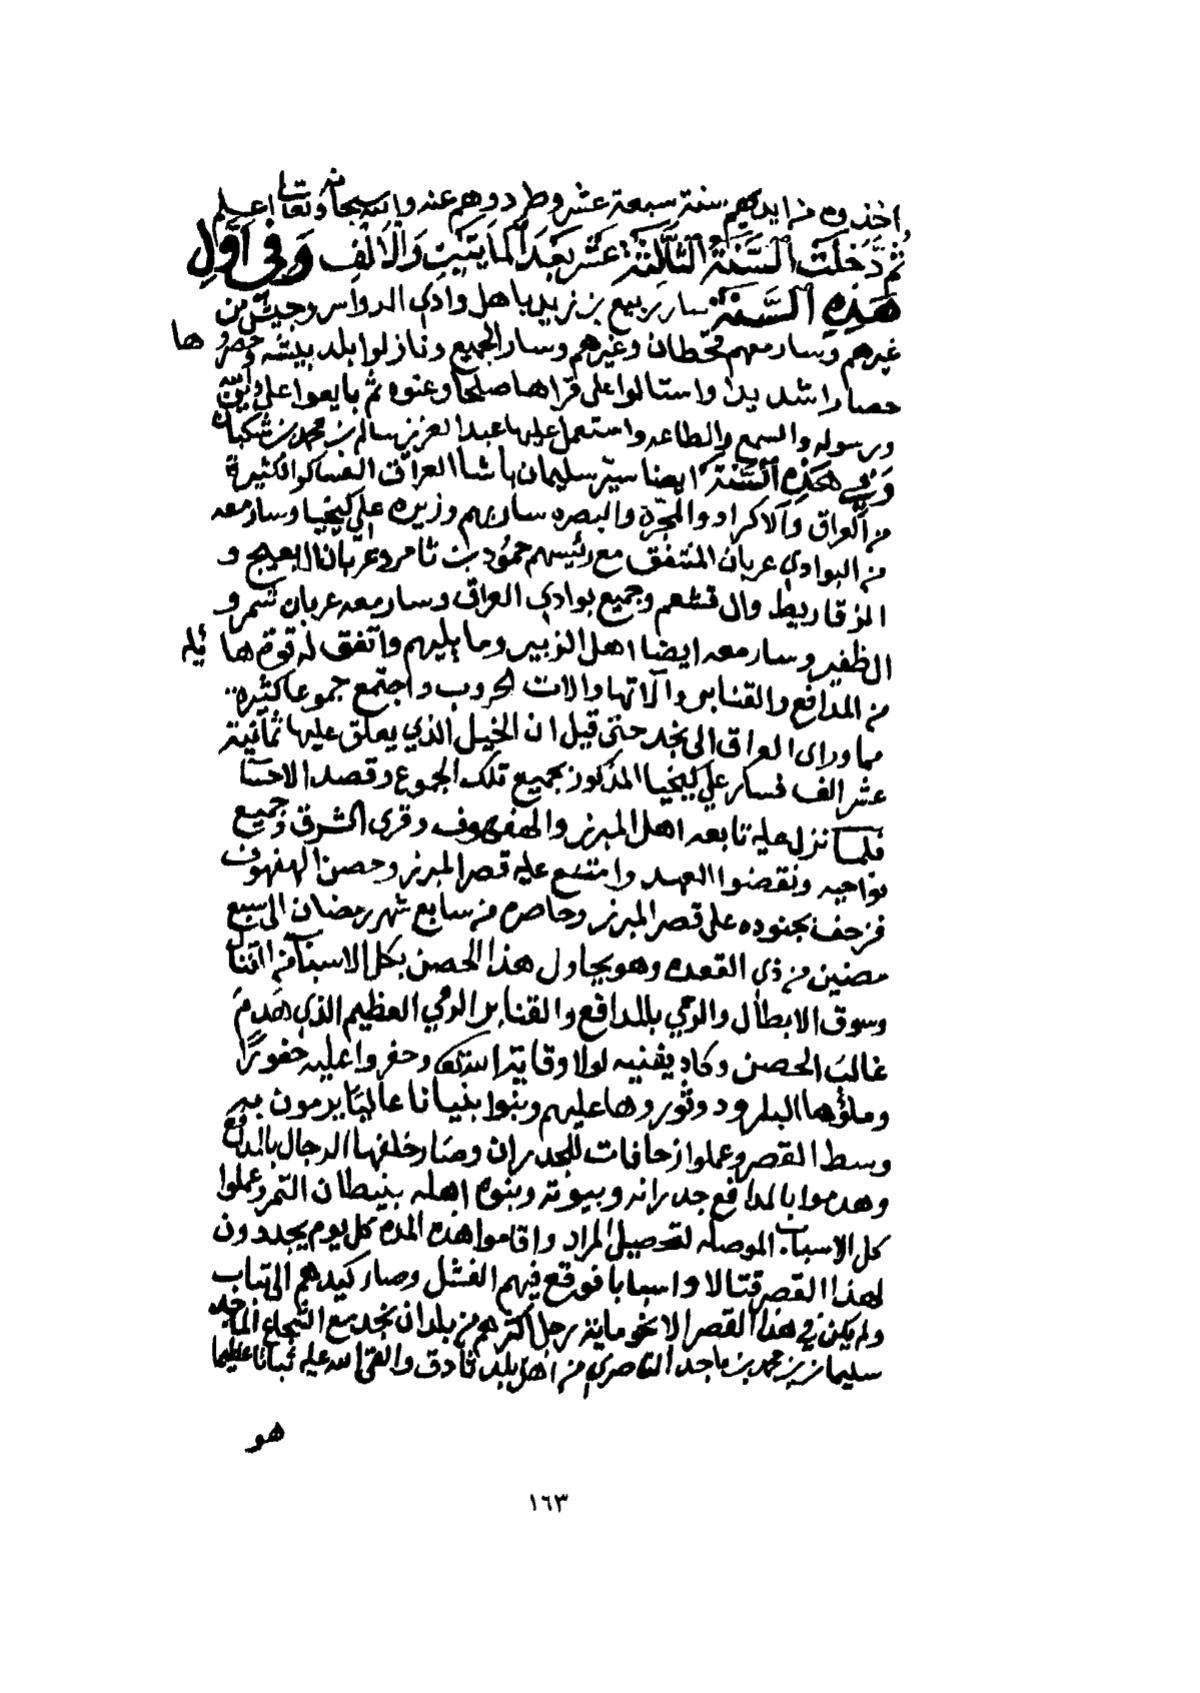 اخذوه من ايديهم سنة سبعة عشر وطردوهم عنه والله سبحانه وتعالى اعلم
ثم دخلت السنة الثالثة عشر بعد المايتين والالف وفي اول
هذه السنة سار ربيع بن زيد باهل وادي الدواسر وجيش من
غيرهم وسار معهم قحطان وغيرهم وسار الجميع ونازلوا بلد بيشه وحصروها
حصارا شديدا واستالوا على قراها صلحا وعنوه ثم بايعوا على دين الله
ورسوله والسمع والطاعه واستعمل عليها عبد العزيز سالم بن محمد بن شكبان
وفي هذه السنة ايضا سير سليمان باشا العراق العساكر الكثيرة
من العراق والاكراد والمجرة والبصره سار بهم وزيره علي كيخيا وسار معه
من البوادي عربان المنتفق مع رئيسهم حمود بن ثامر وعربان البعيج و
الزقاريط وال قشعم وجميع بوادي العراق وسار معه عربان شمر و
الظفير وسار معه ايضا اهل الزبير وما يليهم واتفق له قوة هايله
من المدافع والقنابر والاتها والات الحروب واجتمع جموعا كثيره
مما وراى العراق الى نجد حتى قيل ان الخيل الذي يعلق عليها ثمانية
عشر الف فسار علي كيخيا المذكور بجميع تلك الجموع وقصد الاحسا
فلما نزل عليه تابعه اهل المبرز والهفهوف وقرى الشرق وجميع
نواحيه ونقضوا العهد وامتنع عليه قصر المبرز وحصن الهفهوف
فزحف بجنوده على قصر المبرز وحاصره من سابع شهر رمضان الى سبع
مضين من ذي القعده وهو يحاول هذا الحصن بكل الاسباب من القتال
وسوق الابطال والرمي بالمدافع والقنابر الرمي العظيم الذي هدم
غالب الحصن وكاد يفنيه لولا وقاية الله وحفروا عليه حفورا
وملؤها البارود وثوروها عليهم وبنوا بنيانا عاليا يرمون به
وسط القصر وعملوا زحافات للجدران وصار خلفها الرجال بالمدافع
وهدموا بالمدافع جدرانه وبيوته وبنوه اهله بنيطان التمر وعملوا
كل الاسباب الموصله لتحصيل المراد واقاموا هذه المده كل يوم يجددون
لهذا القصر قتالا واسبابا فوقع فيهم الفشل وصار كيدهم الى تباب
ولم يكن في هذا القصر الا نحو ماية رجل اكثرهم من بلدان نجد مع الشجاع الماجد
سليمان بن محمد بن ماجد الناصري من اهل بلد ثادق والقى الله عليه ثباتا عظيما
هو
١٦٣